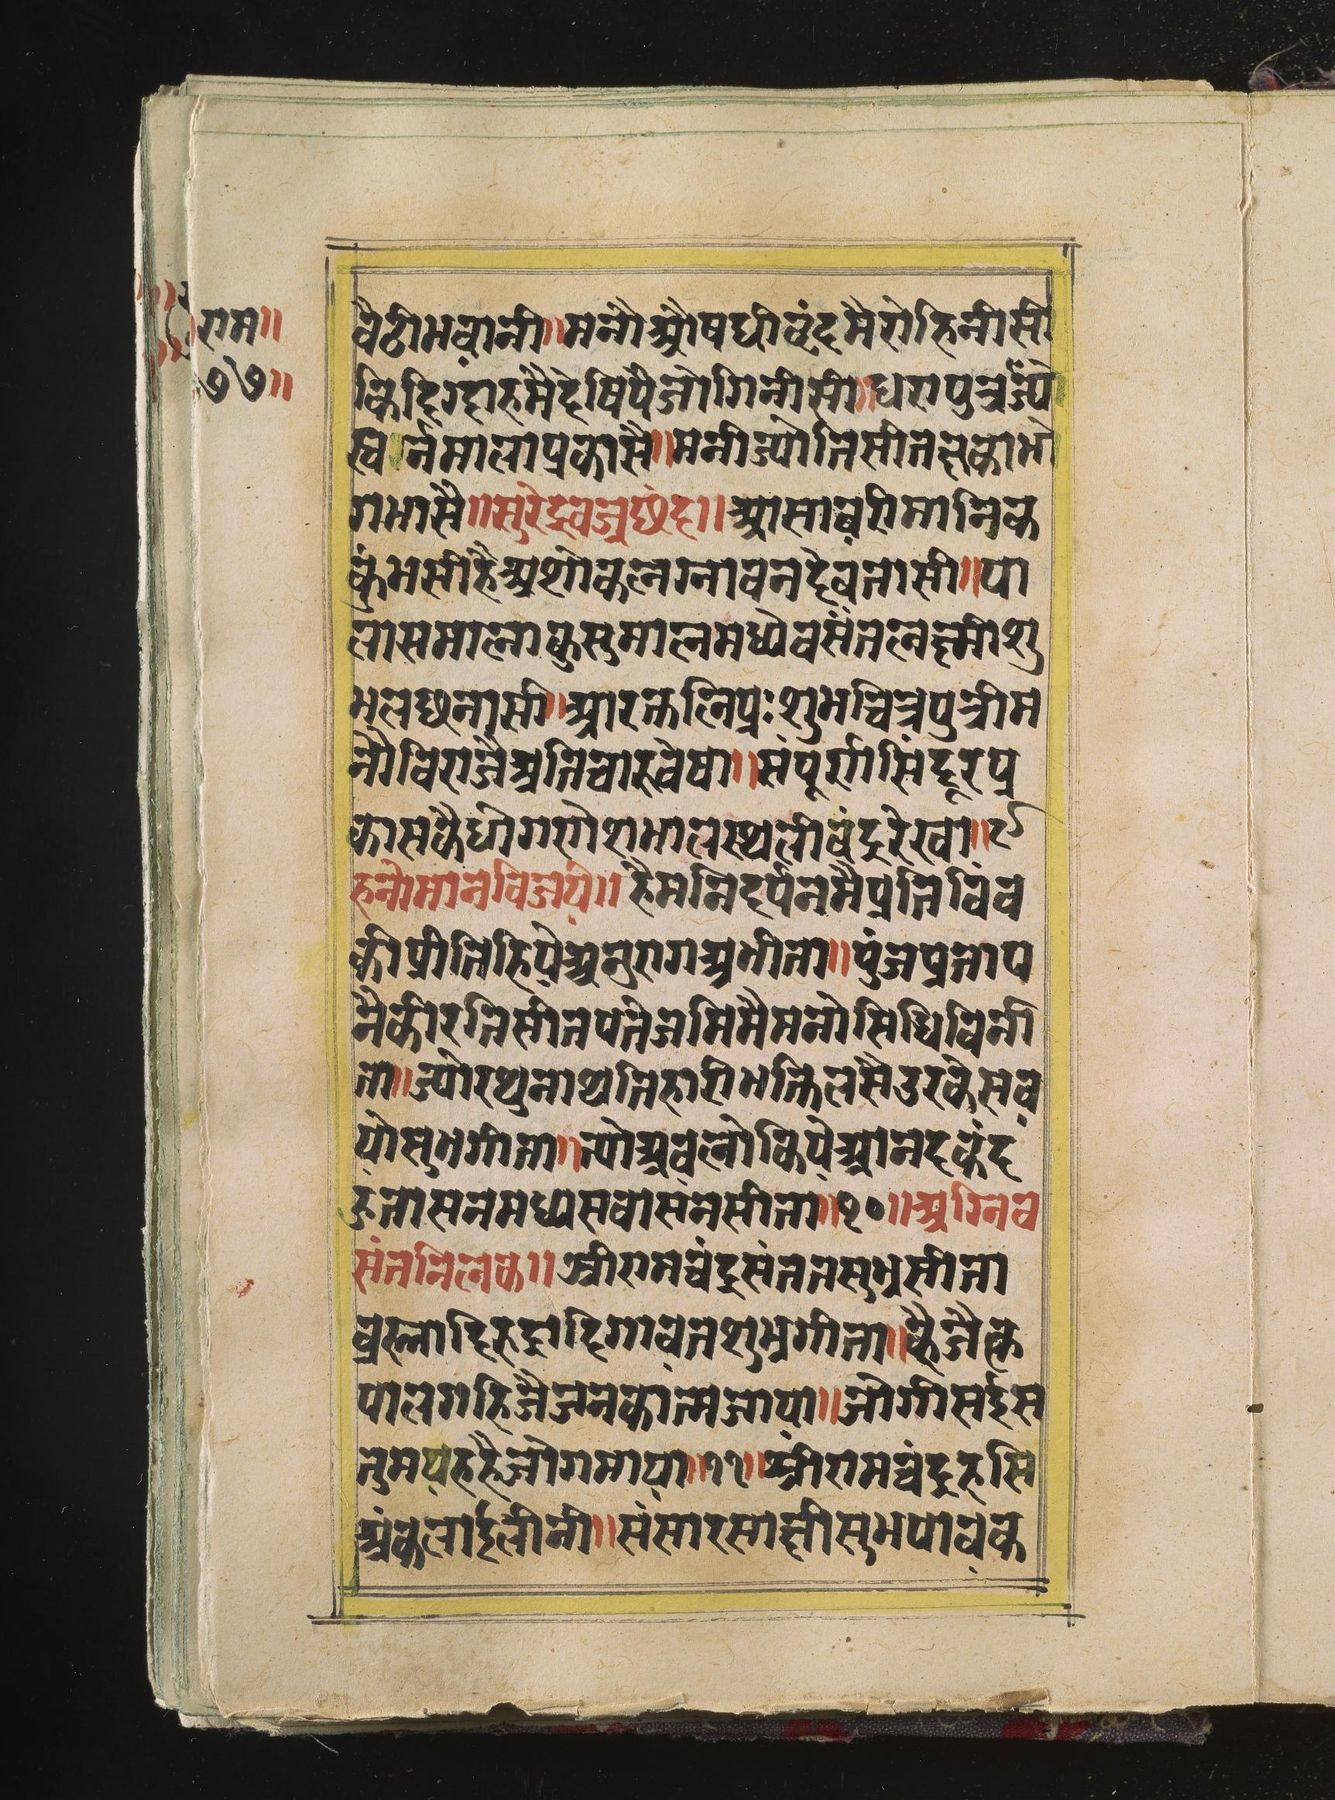 राम॥
७७॥
वैठीभवानी॥मनौऔषधीवृंदमैरोहिनीसी
किदिग्दाहमैदेषियैजोगिनीसी॥धरापुत्रज्यौ
स्वर्नमालाप्रकासै॥मनीज्योतिसीतछकाभो
गभासै॥सुरेंद्रवज्रछंद॥आसावरीमानिक
कुंभसीहैअशोकलग्नावनदेवतासी॥पा
लासमालाकुसुमालमध्येवसंतलक्ष्मीशु
भलछनासी॥आरक्तलिप्रःशुभचित्रपुत्रीम
नौविराजैअतिचारुवेषा॥संपूर्णसिंदूरप्र
कासकैधौगणेशभालस्थलीचंद्ररेखा॥९
हनौमानविजय॥हैमनिदर्पनमैप्रतिविंव
कीप्रीतिहियेअनुरागअभीता॥पुंजप्रताप
नैकीरतिसीतपतेजमिमैमनोसिधिविनी
ता॥ज्योरघुनाथतिहारीभक्तिलसैउरकेसव
योसुभगीता॥त्योअवलोकियेआनदकंद
हुतासनमध्यसवासनसीता॥१०॥अग्निव
संततिलक॥श्रीरामचंद्रसंततसुभ्रसीता
व्रह्मादिरुद्रादिगावतशुभ्रगीता॥कैजैक
पालगहिजैजनकात्मजाया॥जोगीसईस
तुमयहहैजोगमाया॥११॥श्रीरामचंद्रहसि
अंकलाईलीनी॥संसारसाक्षीसुभपावक